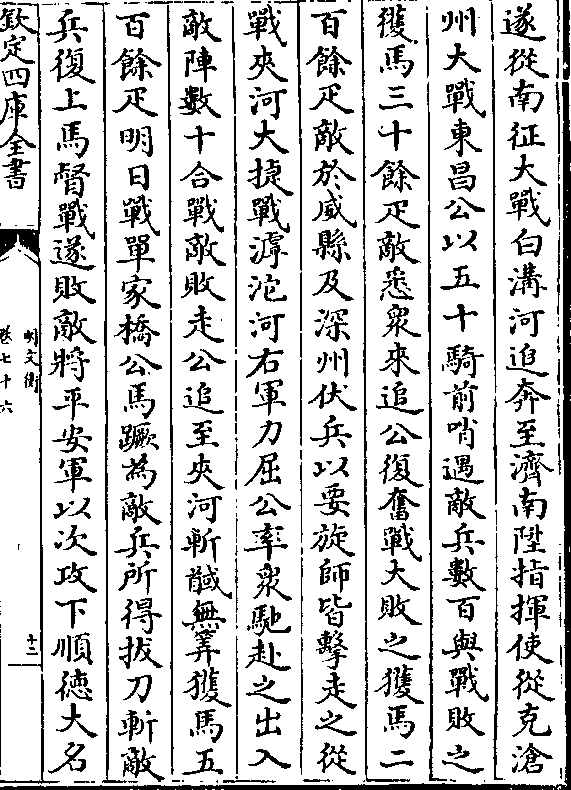 遂從南征大戰白溝河追奔至濟南陞指揮使從克滄
州大戰東昌公以五十騎前哨遇敵兵數百與戰敗之
獲馬三十餘疋敵悉衆來追公復奮戰大敗之獲馬二
百餘疋敵於威縣及深州伏兵以要旋師皆擊走之從
戰夾河大捷戰滹沱河右軍力屈公率衆馳赴之出入
敵陣數十合戰敵敗走公追至夾河斬馘無筭獲馬五
百餘疋明日戰單家橋公馬蹶為敵兵所得拔刀斬敵
兵復上馬督戰遂敗敵將平安軍以次攻下順德大名
欽定四庫全書
明文衡
卷七十六
十三